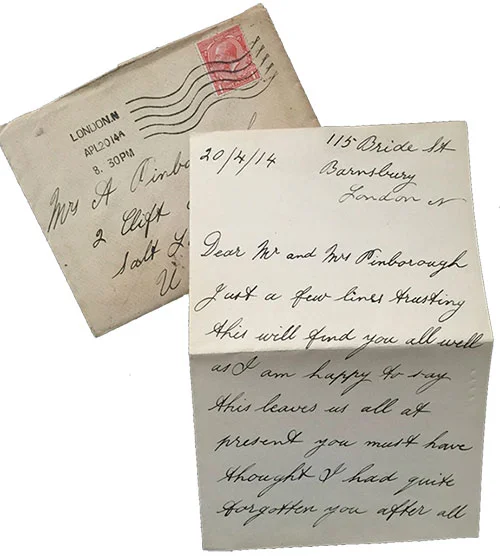 LONDON.N
APL 20 14A
8. 30PM
Mrs A Pinbo
2 Clift
Salt L
U
20/4/14
115 Bride St
Barnsbury
London N
Dear Mr and Mrs Pinborough
Just a few lines trusting
this will find you all well
as I am happy to say
this leaves us all at
present you must have
thought I had quite
forgotten you after all